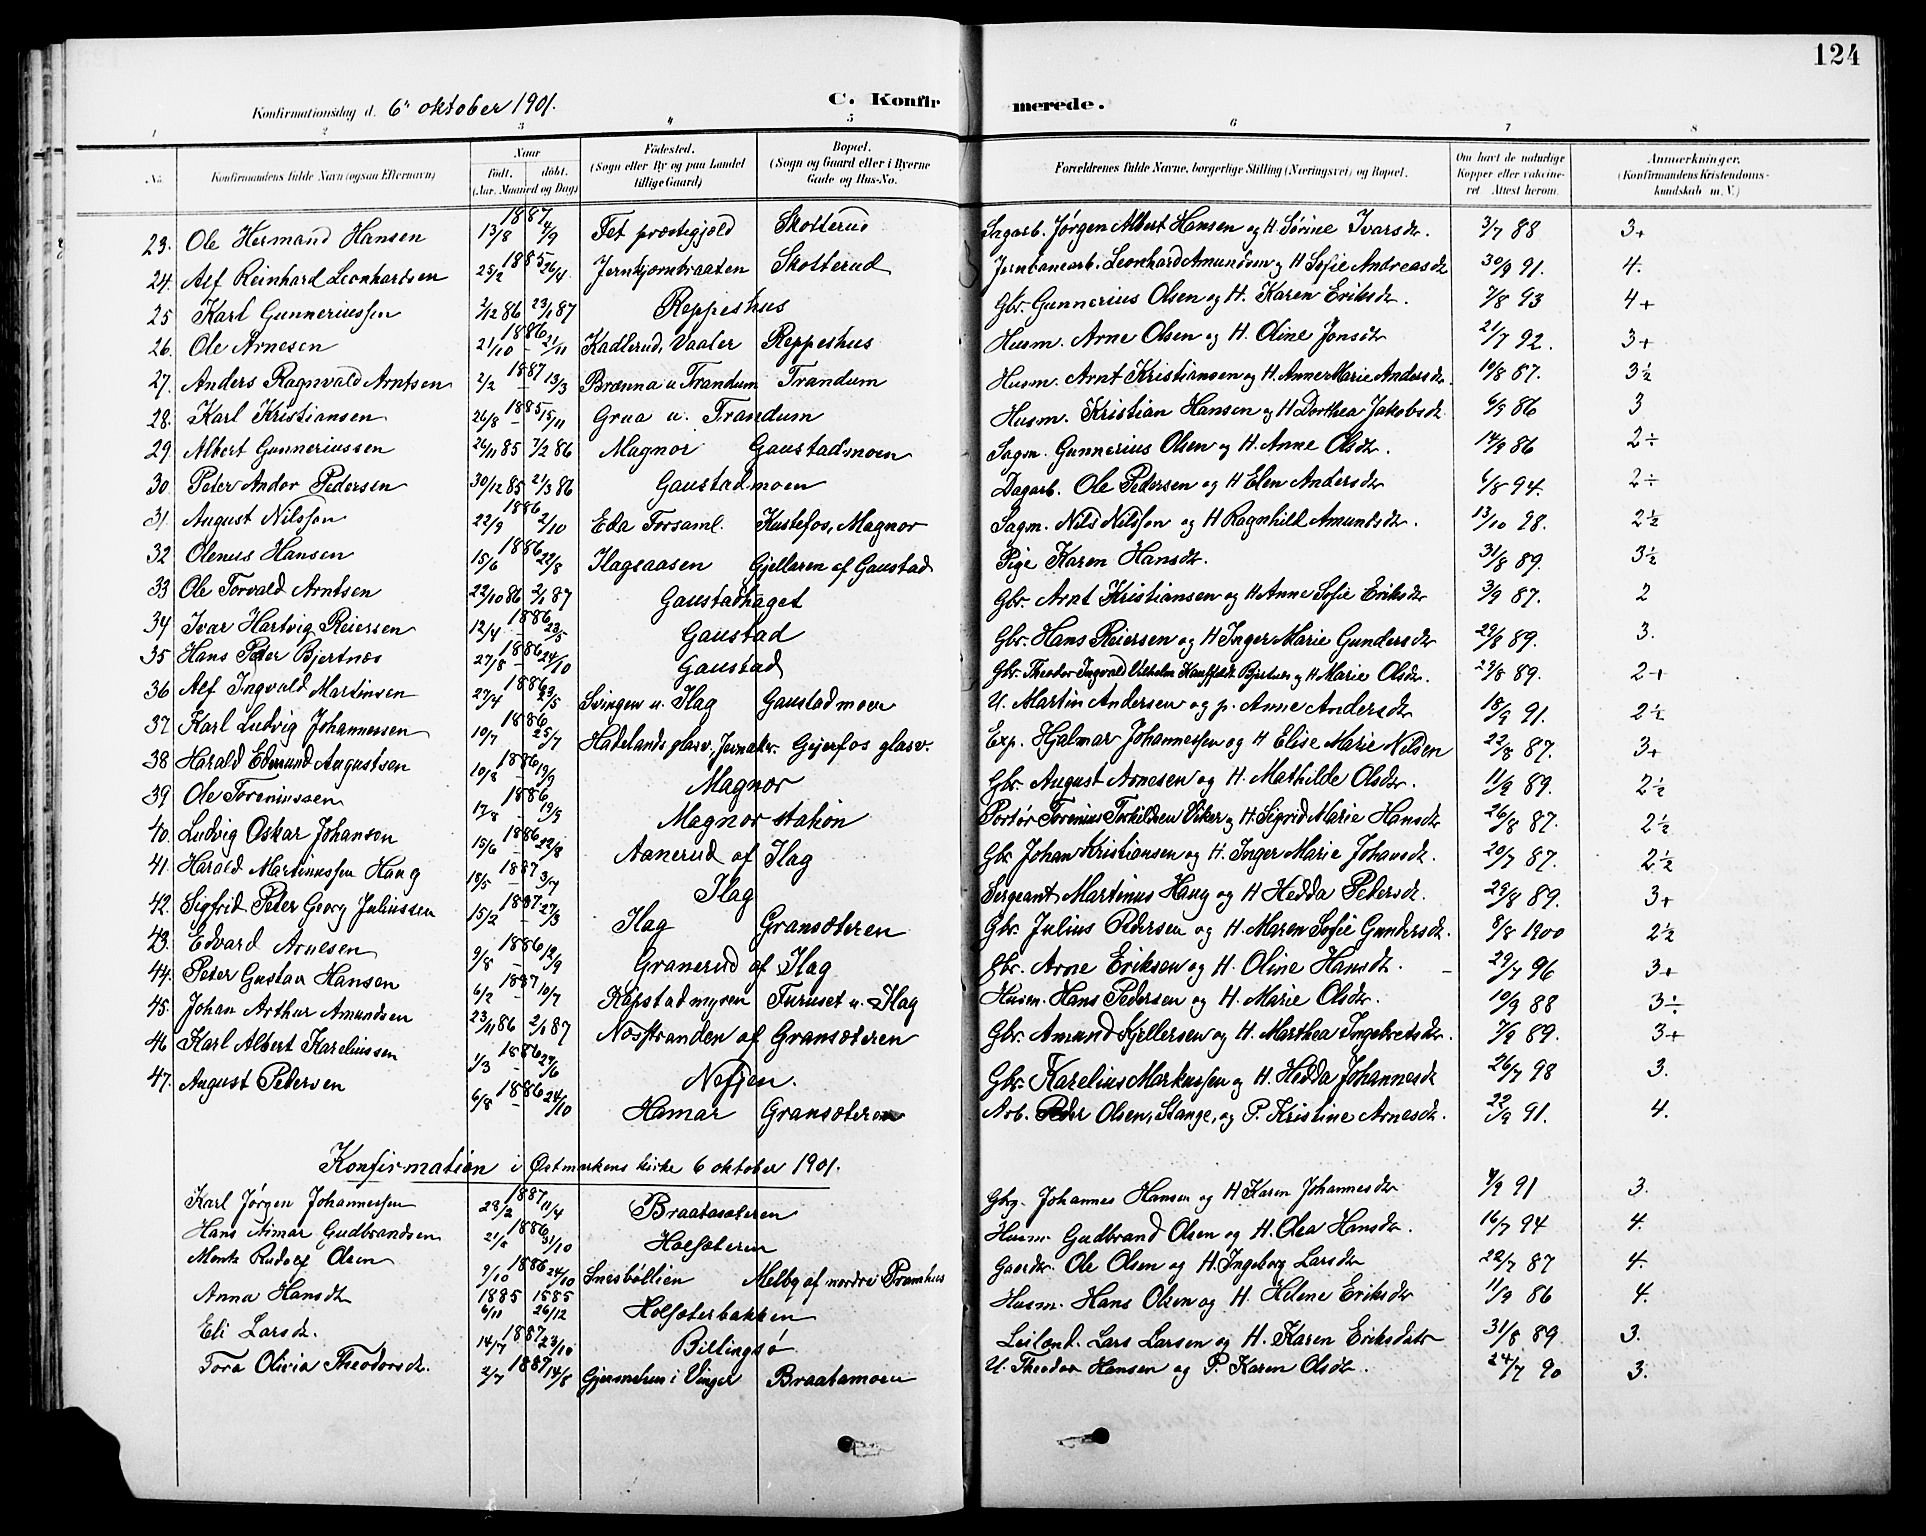 124
Konfirmationsdag d. 6' oktober 1901. C. Konfir merede.
1 2 3 4 5 6 7 8
No. Konfirmandens fulde Navn (ogsaa Efternavn) Naar Född. döbt. (Aar, Maaned og Dag) Födested. (Sogn eller By og paa Landet tillige Gaard) Bopæl. (Sogn og Gaard eller i Byerne Gade og Hus-No. Forældrenes fulde Navne, borgerlige Stilling (Næringsvei) og Bopæl. Om havt de naturlige Kopper eller vakcineret. Attest herom. Anmærkninger. (Konfirmandens Kristendomskundskab m. V.)
23. Ole Hermand Hansen 1887 13/8 4/9 Fet præstegjeld Skotterud Sagarb. Jørgen Albert Hansen og H. Sørine Ivarsdr. 3/7 88 3+
24. Alf Reinhard Leonhardsen 1885 25/2 26/4 Jernhjornbraaten Skotterud Jernbanearb. Leonhard Amundsen og H Sofie Andreasdr 30/9 91. 4.
25 Karl Gunneriussen 2/12 86 23/1 87 Reppeshus Gbr. Gunnerius Olsen og H. Karen Eriksdr. 7/8 93 4+
26. Ole Arnesen 1886 21/10 - 21/11 Kadlerud, Vaaler Reppeshus Husm. Arne Olsen og H. Oline Jonsdr 21/7 92. 3+
27. Anders Ragnvald Arntsen 1887 2/2 - 13/3 Brænna u Trandum Trandum Husm. Arnt Kristiansen og H. Anne Marie Andersdr. 19/8 87. 3½
28. Karl Kristiansen 1885 26/8 - 15/11 Grua u. Trandum Husm. Kristian Hansen og H Dorthea Jakobsdr. 6/9 86 3
29. Albert Gunneriussen 26/11 85 7/2 86 Magnor Gaustadmoen Sagm. Gunnerius Olsen og H. Anne Olsdr. 14/9 86 2÷
30. Peter Andor Pedersen 30/12 85 21/3 86 Gaustadmoen Dagarb. Ole Pedersen og H Elen Andersdr 6/8 94. 2÷
31. August Nilssen 1886 22/9 2/10 Eda Forsaml. Kustefos, Magnor Sagm. Nils Nilssen og H Ragnhild Amundsdr. 13/10 98. 2½
32 Olenus Hansen 1886 15/6 22/8 Hagsaasen Gjellaren af Gaustad Pige Karen Hansdr. 31/8 89. 3½
33 Ole Torvald Arntsen 22/10 86 2/1 87 Gaustadhaget Gbr. Arnt Kristiansen og H Anne Sofie Eriksdr 3/9 87. 2
34 Ivar Hartvig Reiersen 1886 12/4 - 23/5 Gaustad Gbr. Hans Reiersen og H Inger Marie Gundersdr 29/8 89. 3.
35 Hans Peter Bjertnæs 1886 27/8 - 24/10 Gaustad Gbr. Theodor Ingvald Vilhelm Bjertnes og H Marie Olsdr. 29/8 89. 2+
36 Alf Ingvald Martinsen 1886 27/4 23/5 Svingen u. Hag Gaustadmoen U. Martin Andersen og p. Anne Andersdr 18/9 91. 2½
37. Karl Ludvig Johannessen 1886 10/7 25/7 Hadelands glasv. Jevnaker. Gejerfos glasv. Exp. Hjalmar Johannessen og H Elise Marie Nilsen 22/8 87. 3+
38 Harald Edmund Augustsen 1886 10/8 19/9 Magnor Gbr. August Arnesen og H. Mathilde Olsdr. 11/9 89. 2½
39 Ole Toreniussen 1886 17/8 19/9 Magnor station Portør Torenius Torkildsen Viker og H. Sigrid Marie Hansdr 26/8 87. 2½
40. Ludvig Oskar Johansen 1886 15/6 22/8 Aanerud af Hag Gbr. Johan Kristiansen og H. Inger Marie Johansdr. 20/7 87. 2½
41. Harald Martinussen Haug 1887 18/5 - 3/7 Hag Sergeant Martinus Haug og H Hedda Pedersdr. 29/8 89. 3+
42. Sigfrid Peter Georg Juliussen 1887 15/2 - 27/3 Hag Gransæteren Gbr. Julius Pedersen og H. Maren Sofie Gundersdr. 8/8 1900 2½
43. Edvard Arnesen 1886 9/8 - 12/9 Granerud af Hag Gbr. Arne Eriksen og H. Oline Hansdr. 29/7 96 3+
44. Peter Gustav Hansen 1887 6/2 - 10/7 Kapstadmyren Furuset u. Hag Husm. Hans Pedersen og H. Marie Olsdr. 19/9 88 3÷
45. Johan Arthur Amundsen 23/11 86 2/1 87 Nosstranden af Gransæteren Gbr. Amund Kjellersen og H. Marthea Ingebretsdr. 7/9 89. 3+
46 Karl Albert Kareliussen 1886 1/3 - 27/6 Nessjen. Gbr. Karelius Markussen og H. Hedda Johannesdr 26/7 98 3.
47. August Pedersen 1886 6/8 - 24/10 Hamar Gransæteren Arb. Peder Olsen, Stange, og P. Kristine Arnesdr. 22/9 91. 4.
Konfirmation i Østmarkens kirke 6 oktober 1901.
Karl Jørgen Johannessen 1887 28/2 11/4 Braatasæteren Gbr. Johannes Hansen og H Karen Johannesdr 4/9 91 3.
Hans Aimar Gudbrandsen 1886 21/8 31/10 Holsæteren Husm. Gudbrand Olsen og H. Olea Hansdr. 16/7 94 4.
Montz Rudolf Olsen 1886 9/10 24/10 Snesböllien Melby af nordre Pramhus Gaardbr. Ole Olsen og H. Ingeborg Larsdr 22/7 87 4.
Anna Hansdr 1885 6/11 1885 26/12 Holsæterbakken Husm. Hans Olsen og H. Helene Eriksdr 11/9 86 4.
Eli Larsdr. 1887 14/7 23/10 Billingsø Leilænd. Lars Larsen og H. Karen Eriksdatr 31/8 89 3.
Tora Olivia Theodorsdr. 1887 2/7 14/8 Gjersmehus i Vinger Braatamoen U. Theodor Hansen og P. Karen Olsdr. 24/7 90 3.